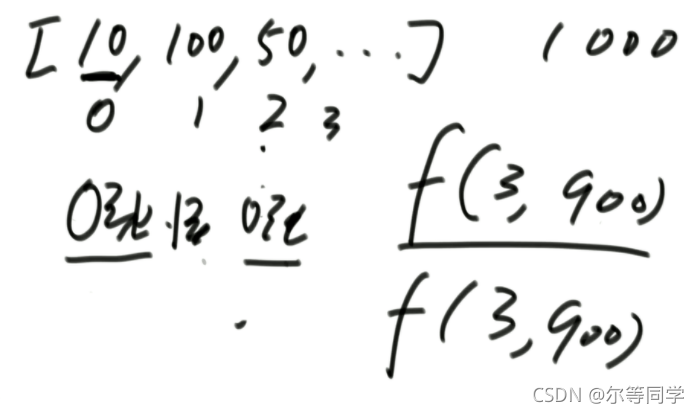 [10, 100, 50, ...] 1000
0 1 2 3
0张 1张 0张
f(3, 900)
f(3, 900)
CSDN @尔等同学